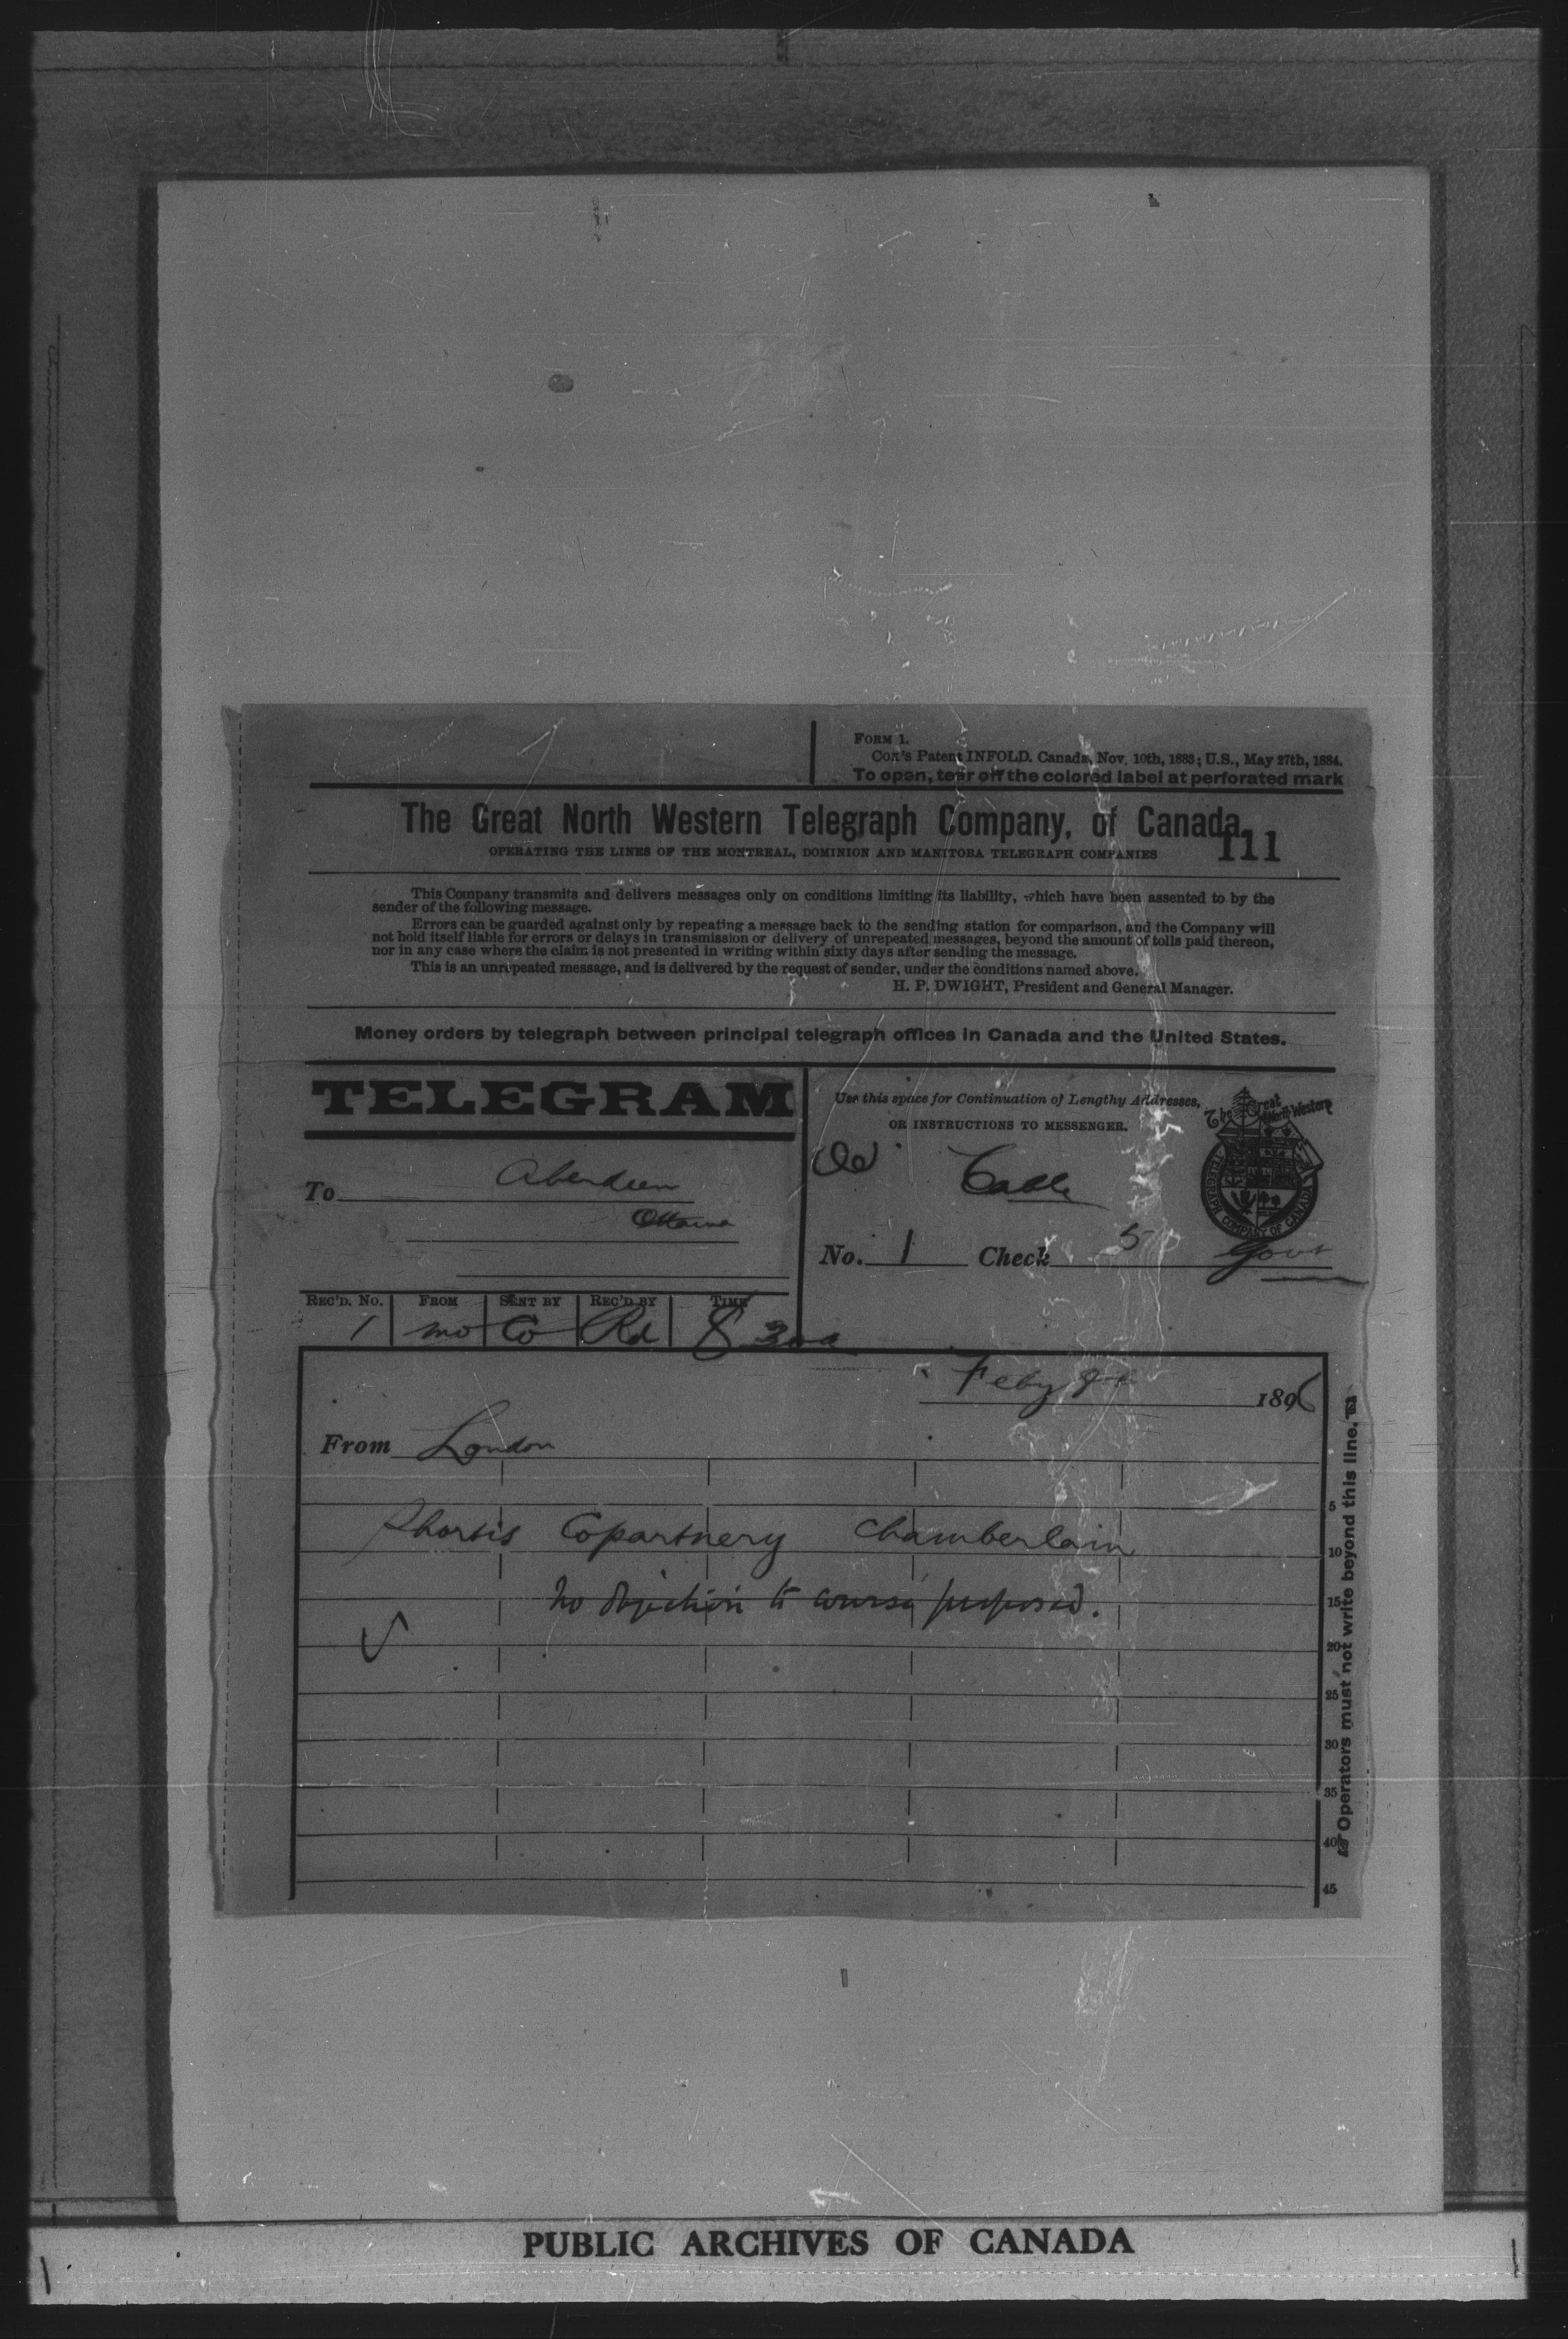 FORM 1.
Cox's Patent INFOLD. Canada, Nov. 10th, 1883; U.S., May 27th, 1884.
To open, tear off the colored label at perforated mark
The Great North Western Telegraph Company, of Canada.
111
OPERATING THE LINES OF THE MONTREAL, DOMINION AND MANITOBA TELEGRAPH COMPANIES
This Company transmits and delivers messages only on conditions limiting its liability, which have been assented to by the
sender of the following message.
Errors can be guarded against only by repeating a message back to the sending station for comparison, and the Company will
not hold itself liable for errors or delays in transmission or delivery of unrepeated messages, beyond the amount of tolls paid thereon,
nor in any case where the claim is not presented in writing within sixty days after sending the message.
This is an unrepeated message, and is delivered by the request of sender, under the conditions named above.
H. P. DWIGHT, President and General Manager.
Money orders by telegraph between principal telegraph offices in Canada and the United States.
TELEGRAM
To Aberdeen
Ottawa
Use this space for Continuation of Lengthy Addresses,
OR INSTRUCTIONS TO MESSENGER.
Cable
No. 1 Check 5 Govt
The Great North Western
TELEGRAPH COMPANY OF CANADA
REC'D. No. FROM SENT BY REC'D BY TIME
1 mo Co Rd 8 30a
Feby 8th 1896
From London
Shortis Copartnery Chamberlain
No objection to course proposed.
5
10
15
20
25
30
35
40
45
Operators must not write beyond this line.
PUBLIC ARCHIVES OF CANADA